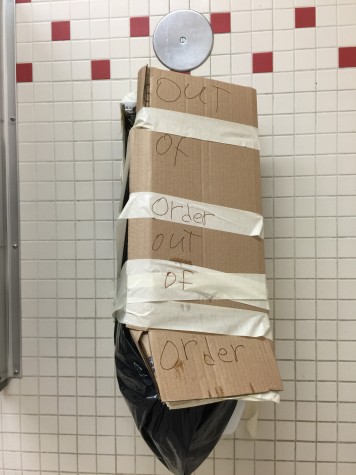 OUT
OF
Order
OUT
OF
Order